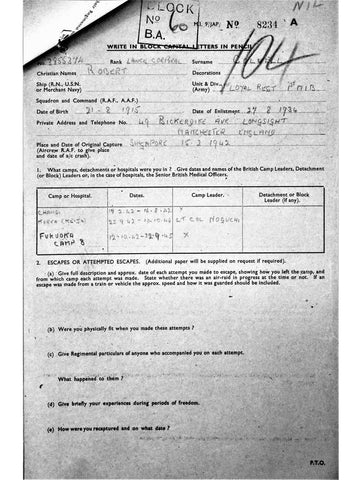 NIL
BLOCK
No 60
B.A.
M.I. 9/JAP. No 8234 A
104
WRITE IN BLOCK CAPITAL LETTERS IN PENCIL
Rank LANCE CORPORAL Surname
Christian Names ROBERT Decorations
Ship (R.N., U.S.N. or Merchant Navy) Unit & Div. (Army) LOYAL REGT
Squadron and Command (R.A.F., A.A.F.)
Date of Birth 21-8 1915 Date of Enlistment 27 8 1934
Private Address and Telephone No. 49 BICKERDIKE AVE LONGSIGHT
MANCHESTER ENGLAND
Place and Date of Original Capture SINGAPORE 15 2 1942
(Aircrew R.A.F. to give place
and date of a/c crash).
1. What camps, detachments or hospitals were you in? Give dates and names of the British Camp Leaders, Detachment
(or Block) Leaders or, in the case of hospitals, the Senior British Medical Officers.
Camp or Hospital. Dates. Camp Leader. Detachment or Block Leader (if any).
CHANGI X
KOREA LT COL NOGUCHI
FUKUOKA X
CAMP 8
2. ESCAPES OR ATTEMPTED ESCAPES. (Additional paper will be supplied on request if required).
(a) Give full description and approx. date of each attempt you made to escape, showing how you left the camp, and
from which camp each attempt was made. State whether there was an air-raid in progress at the time or not. If an
escape was made from a train or vehicle the approx. speed and how it was guarded should be included.
(b) Were you physically fit when you made these attempts?
(c) Give Regimental particulars of anyone who accompanied you on each attempt.
What happened to them?
(d) Give briefly your experiences during periods of freedom.
(e) How were you recaptured and on what date?
P.T.O.